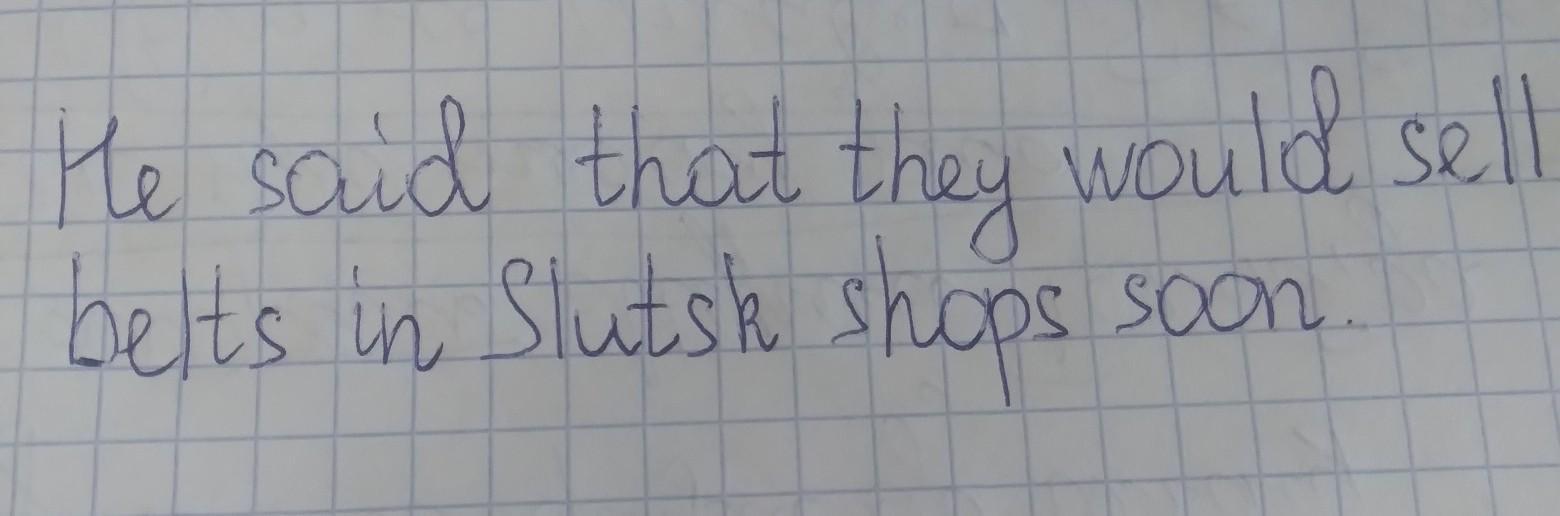 He said that they would sell
belts in Slutsk shops soon.